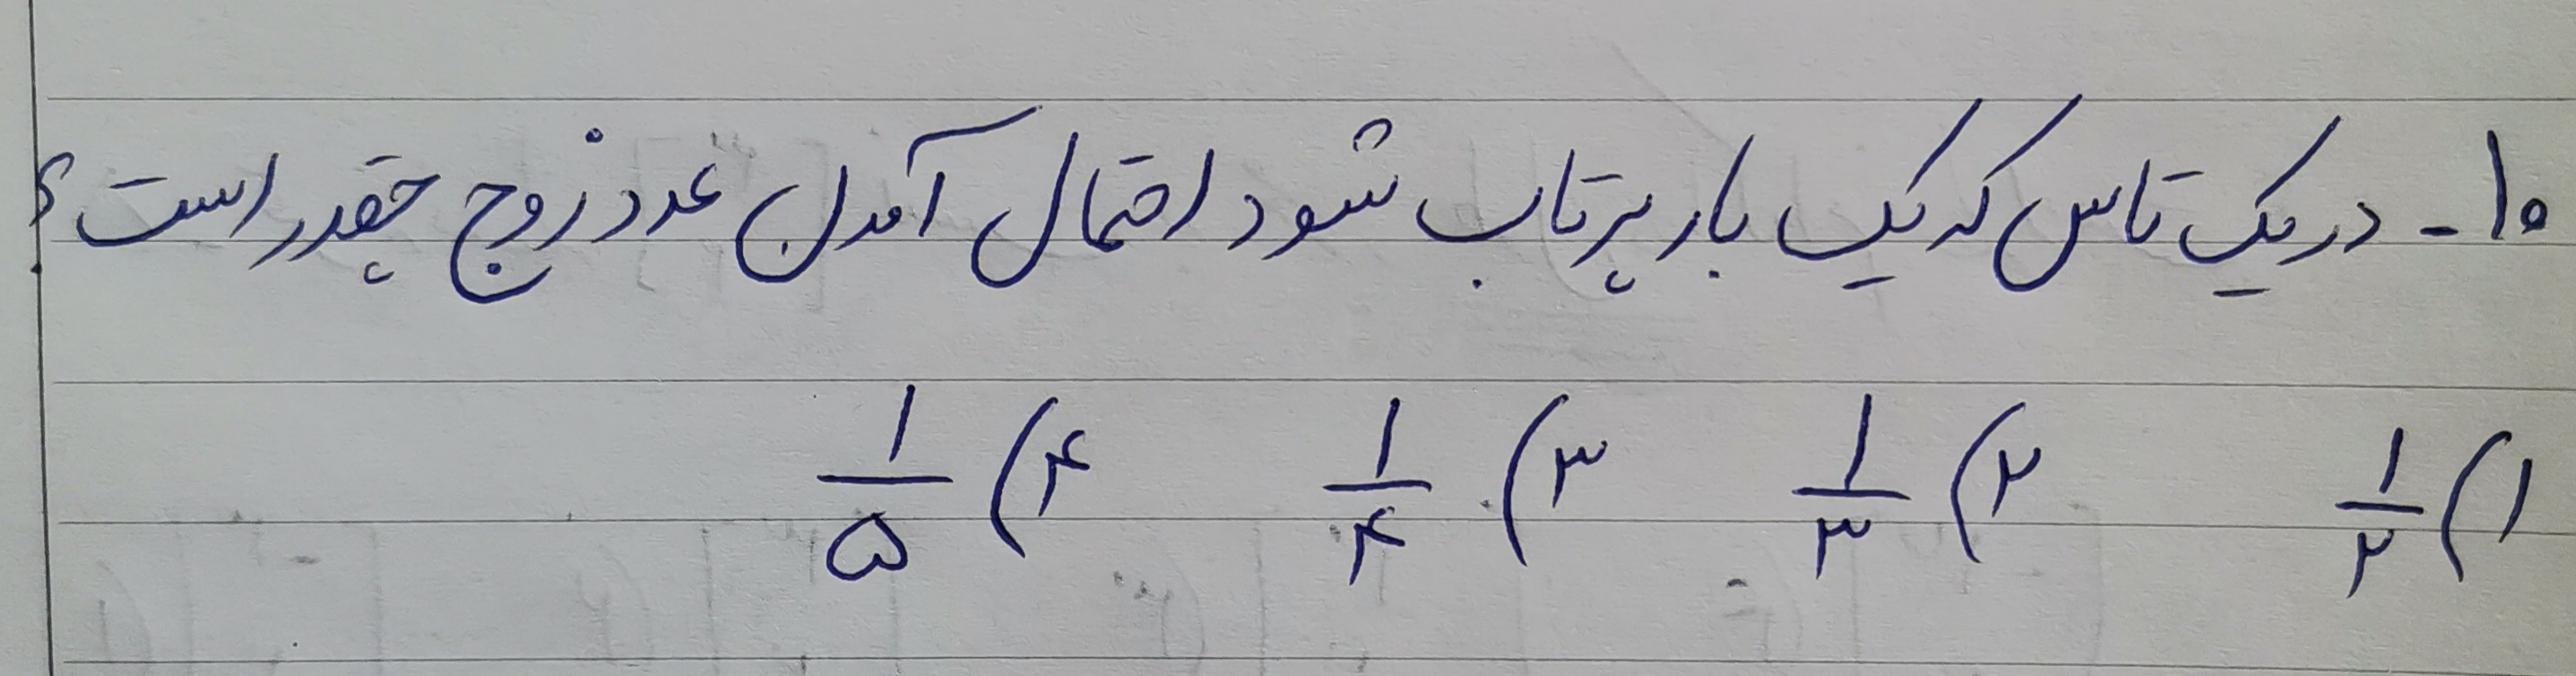 ۱۰- در یک تاس که یک بار پرتاب شود احتمال آمدن عدد زوج چقدر است؟
۱) ۱/۲ ۲) ۱/۳ ۳) ۱/۴ ۴) ۱/۵